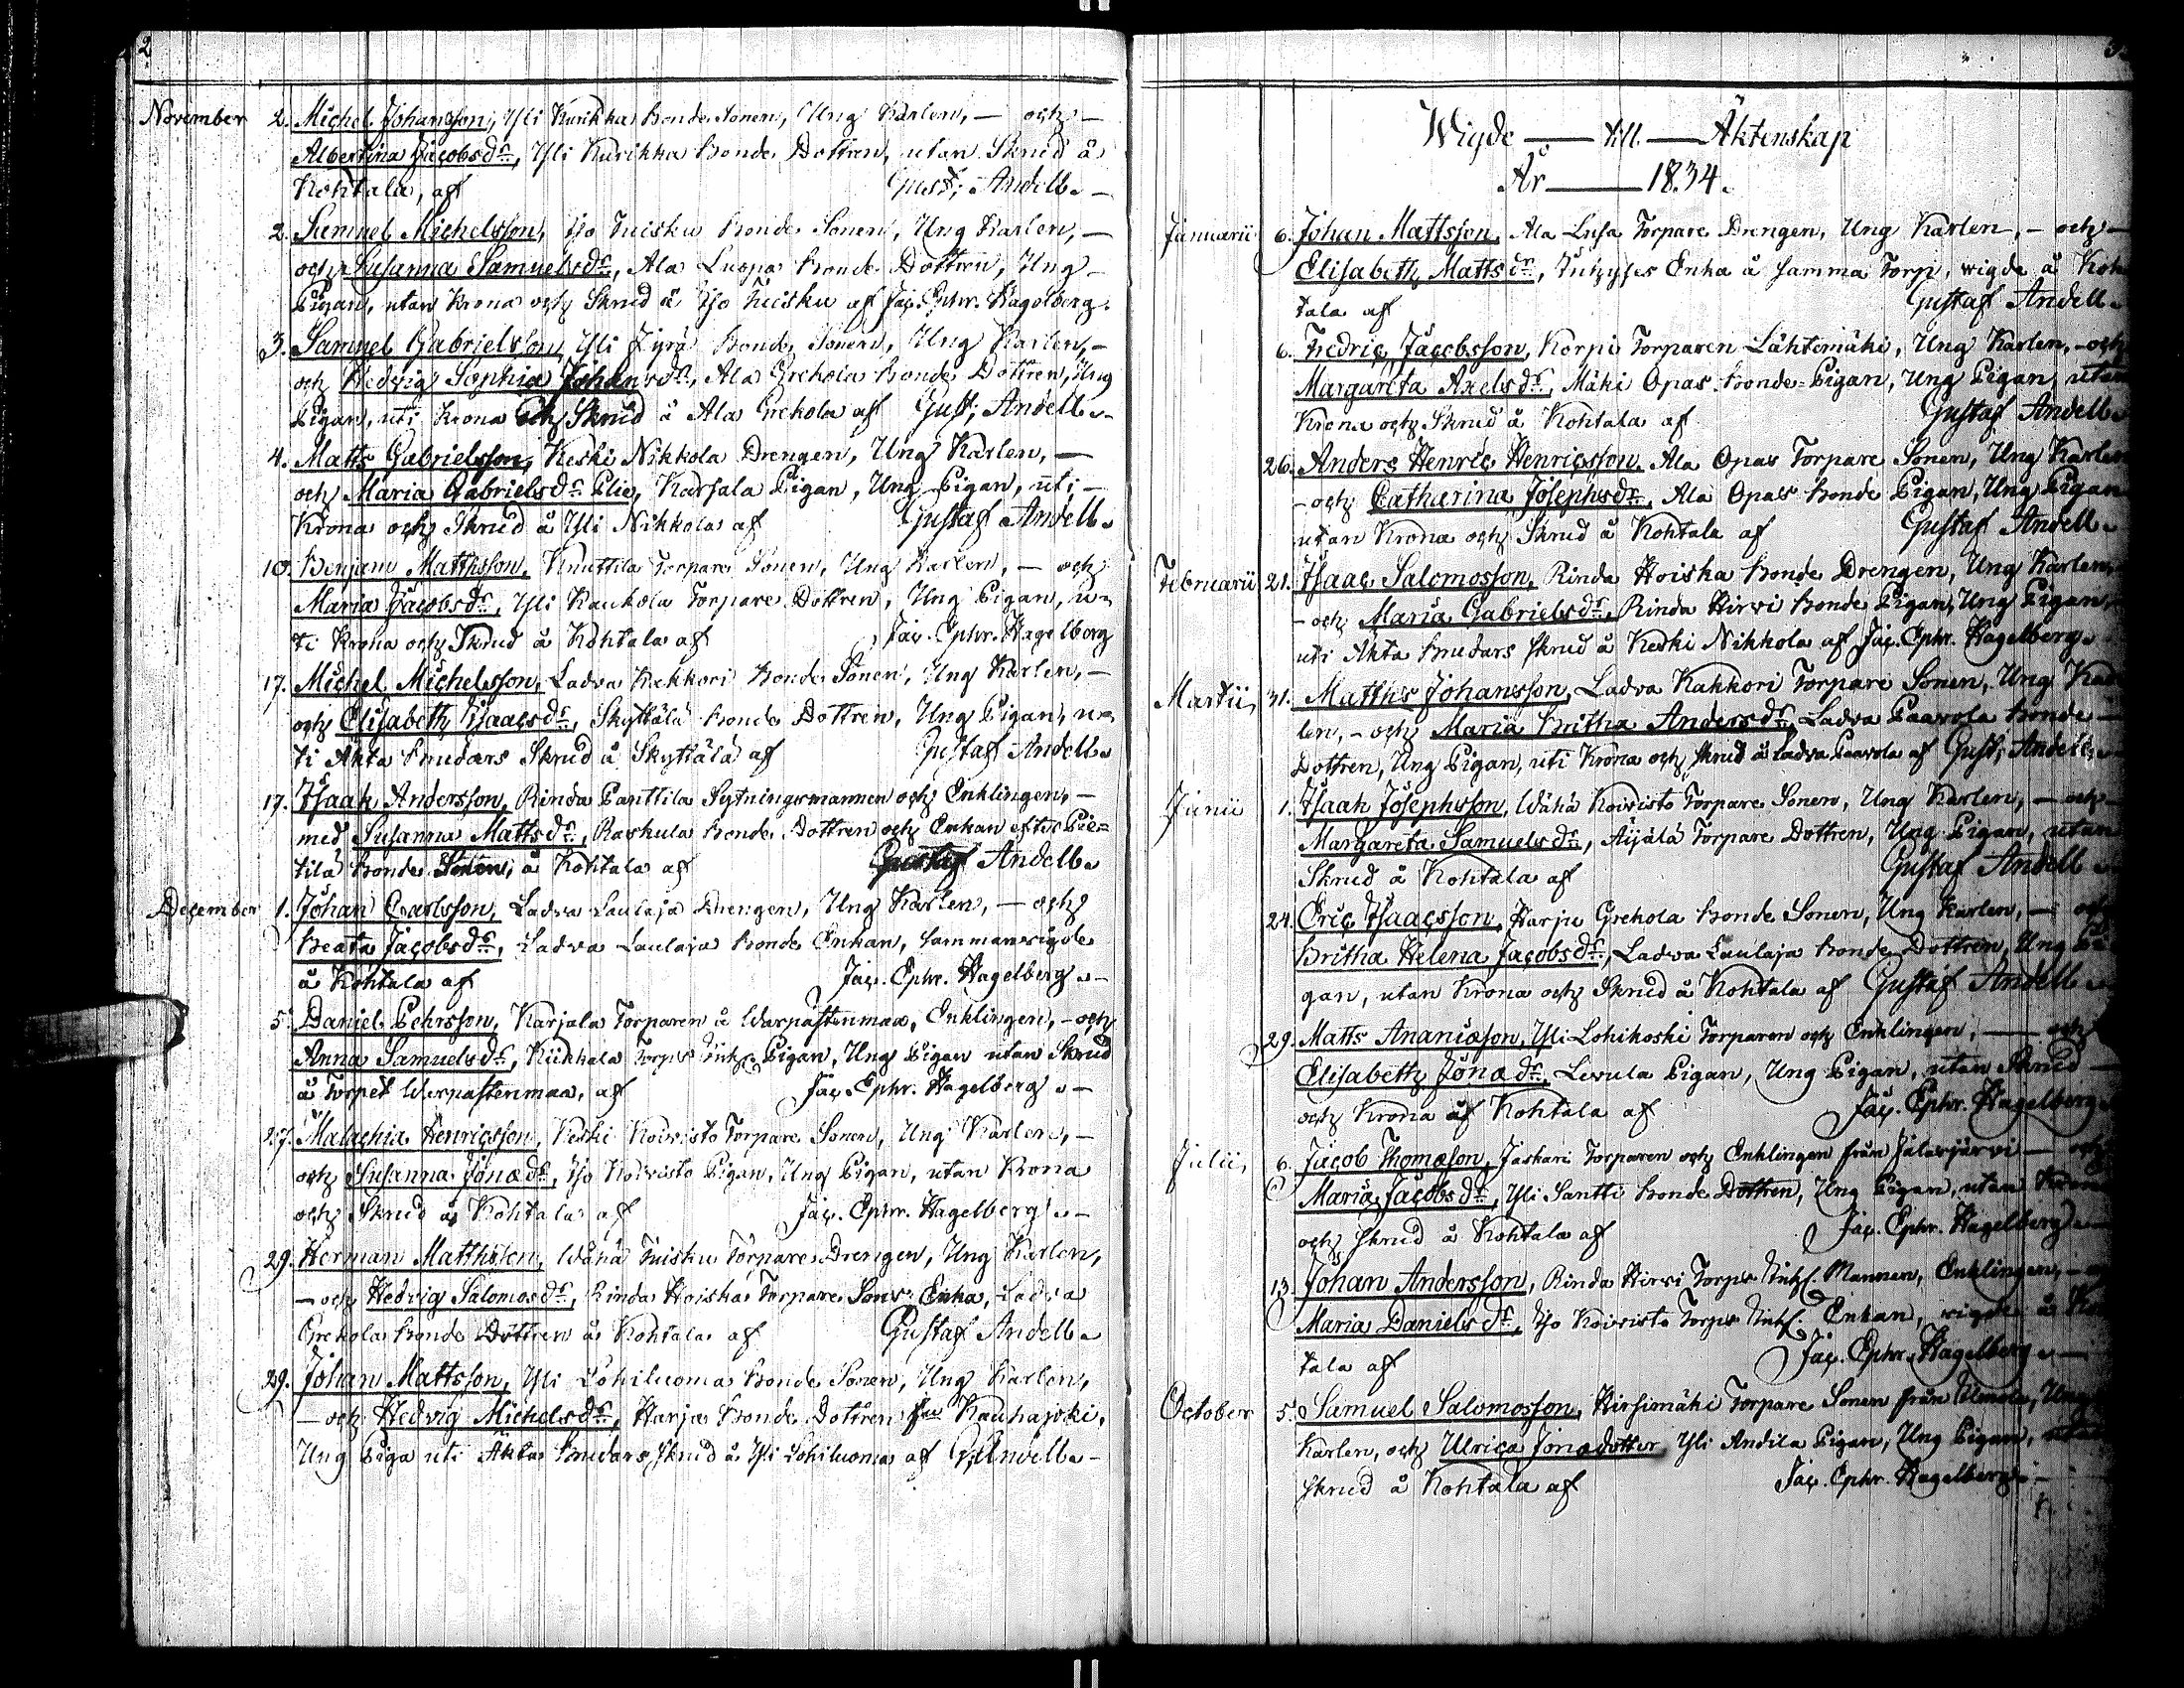 2
November 2. Michel Johansson, Yli Kurikka Bonde Sonen, Ung Karlen, — och —
Albertina Jacobsdr, Yli Kurikka Bonde Dottren, utan Skrud å
Kohtala, af Gust; Andell. —
2. Samuel Michelsson, Iso Tuisku Bonde Sonen, Ung Karlen, —
och Susanna Samuelsdr, Ala Luopa Bonde Dottren, Ung
Pigan, utan Krona och Skrud å Iso Tuisku af Jac. Ephr. Hagelberg.
3. Samuel Gabrielsson, Yli Jyrä Bonde Sonen, Ung Karlen, —
och Hedvig Sophia Johansdr, Ala Grekola Bonde Dottren, Ung
Pigan, uti Krona och Skrud å Ala Grekola af Gust; Andell. —
4. Matts Gabrielsson, Keski Nikkola Drengen, Ung Karlen, —
och Maria Gabrielsdr Plie, Karjala Pigan, Ung Pigan, uti —
Krona och Skrud å Yli Nikkola af Gustaf Andell.
10. Benjam Mathsson, Knuttila Torpare Sonen, Ung Karlen, — och
Maria Jacobsdr, Yli Kaukola Torpare Dottren, Ung Pigan, u=
ti Krona och Skrud å Kohtala af Jac. Ephr. Hagelberg
17. Michel Michelsson, Ladva Kakkori Bonde Sonen, Ung Karlen, —
och Elisabeth Isaacsdr, Skyttälä Bonde Dottren, Ung Pigan, u=
ti Äkta Brudars Skrud å Skyttälä af Gustaf Andell.
17. Isaak Andersson, Rinda Panttila Sytningsmannen och Enklingen, —
med Susanna Mattsdr, Raskula Bonde Dottren och Enkan efter Pie=
tilä Bonde Sonen, å Kohtala af Gustaf Andell.
December 1. Johan Carlsson, Ladva Laulaja Drengen, Ung Karlen, — och
Beata Jacobsdr, Ladva Laulaja Bonde Enkan, sammanvigde
å Kohtala af Jac. Ephr. Hagelberg. —
5. Daniel Pehrsson, Karjala Torparen å Warpastenmaa, Enklingen, — och
Anna Samuelsdr, Kiikkala Torps Pigan, Ung Pigan utan Skrud
å Torpet Warpastenmaa, af Jac. Ephr. Hagelberg. —
27. Malachia Henricsson, Keski Koivisto Torpare Sonen, Ung Karlen, —
och Susanna Jonædr, Iso Koivisto Pigan, Ung Pigan, utan Krona
och Skrud å Kohtala af Jac. Ephr. Hagelberg. —
29. Herman Matthsson, Wähä Tuisku Torpare Drengen, Ung Karlen,
— och Hedvig Salomosdr, Rinda Hoiska Torpare Sons Enka, Ladva
Grekola Bonde Dottren å Kohtala af Gustaf Andell.
29. Johan Mattsson, Yli Lohiluoma Bonde Sonen, Ung Karlen,
— och Hedvig Michelsdr, Harja Bonde Dottren Kauhajoki,
Ung Piga uti Äkta Brudars Skrud å Yli Lohiluoma af G. Andell. —
3.
Wigde — till — Äktenskap
År — 1834.
Januarii 6. Johan Mattsson, Ala Lusa Torpare Drengen, Ung Karlen, — och —
Elisabeth Mattsdr, Enka å samma Torp, wigde å Koh
tala af Gustaf Andell.
6. Fredric Jacobsson, Korpi Torparen Lähtemäki, Ung Karlen, — och
Margareta Axelsdr, Mäki Opas Bonde=Pigan, Ung Pigan, utan
Krona och Skrud å Kohtala af Gustaf Andell.
26. Anders Henric Henricsson, Ala Opas Torpare Sonen, Ung Karlen
— och Catharina Josephsdr, Ala Opas Bonde Pigan, Ung Pigan
utan Krona och Skrud å Kohtala af Gustaf Andell.
Februarii 21. Isaac Salomosson, Rinda Hoiska Bonde Drengen, Ung Karlen,
— och Maria Gabrielsdr, Rinda Hirvi Bonde Pigan, Ung Pigan,
uti Äkta Brudars Skrud å Keski Nikkola af Jac. Ephr. Hagelberg.
Martii, 31. Matths Johansson, Ladva Kakkori Torpare Sonen, Ung Kar
len, — och Maria Britha Andersdr, Ladva Paavola Bonde —
Dottren, Ung Pigan, uti Krona och Skrud å Ladva Paavola af Gust; Andell. —
Junii 1. Isaak Josephsson, Wähä Koivisto Torpare Sonen, Ung Karlen, — och
Margareta Samuelsdr, Äijälä Torpare Dottren, Ung Pigan, utan
Skrud å Kohtala af Gustaf Andell.
24. Eric Isaacsson, Harju Grekola Bonde Sonen, Ung Karlen, — och
Britha Helena Jacobsdr, Ladva Laulaja Bonde Dottren, Ung Pi
gan, utan Krona och Skrud å Kohtala af Gustaf Andell.
29. Matts Ananiæson, Yli-Lohikoski Torparen och Enklingen, — och
Elisabeth Jonædr, Levula Pigan, Ung Pigan, utan Skrud —
och Krona å Kohtala af Jac. Ephr. Hagelberg.
Julii, 6. Jacob Thomæson, Jaskari Torparen och Enklingen från Jalasjärvi — och
Maria Jacobsdr, Yli Santti Bonde Dottren, Ung Pigan, utan Krona
och Skrud å Kohtala af Jac. Ephr. Hagelberg. —
13. Johan Andersson, Rinda Hirvi Torps Inhs. Mannen, Enklingen, —
Maria Danielsdr, Iso Koivisto Torps Inhs. Enkan, vigde å Koh
tala af Jac. Ephr. Hagelberg. —
October 5. Samuel Salomosson, Hirsimäki Torpare Sonen från Ilmola, Ung
Karlen, och Ulrica Jonædotter Yli Andila Pigan, Ung Pigan, utan
Skrud å Kohtala af Jac. Ephr. Hagelberg. —